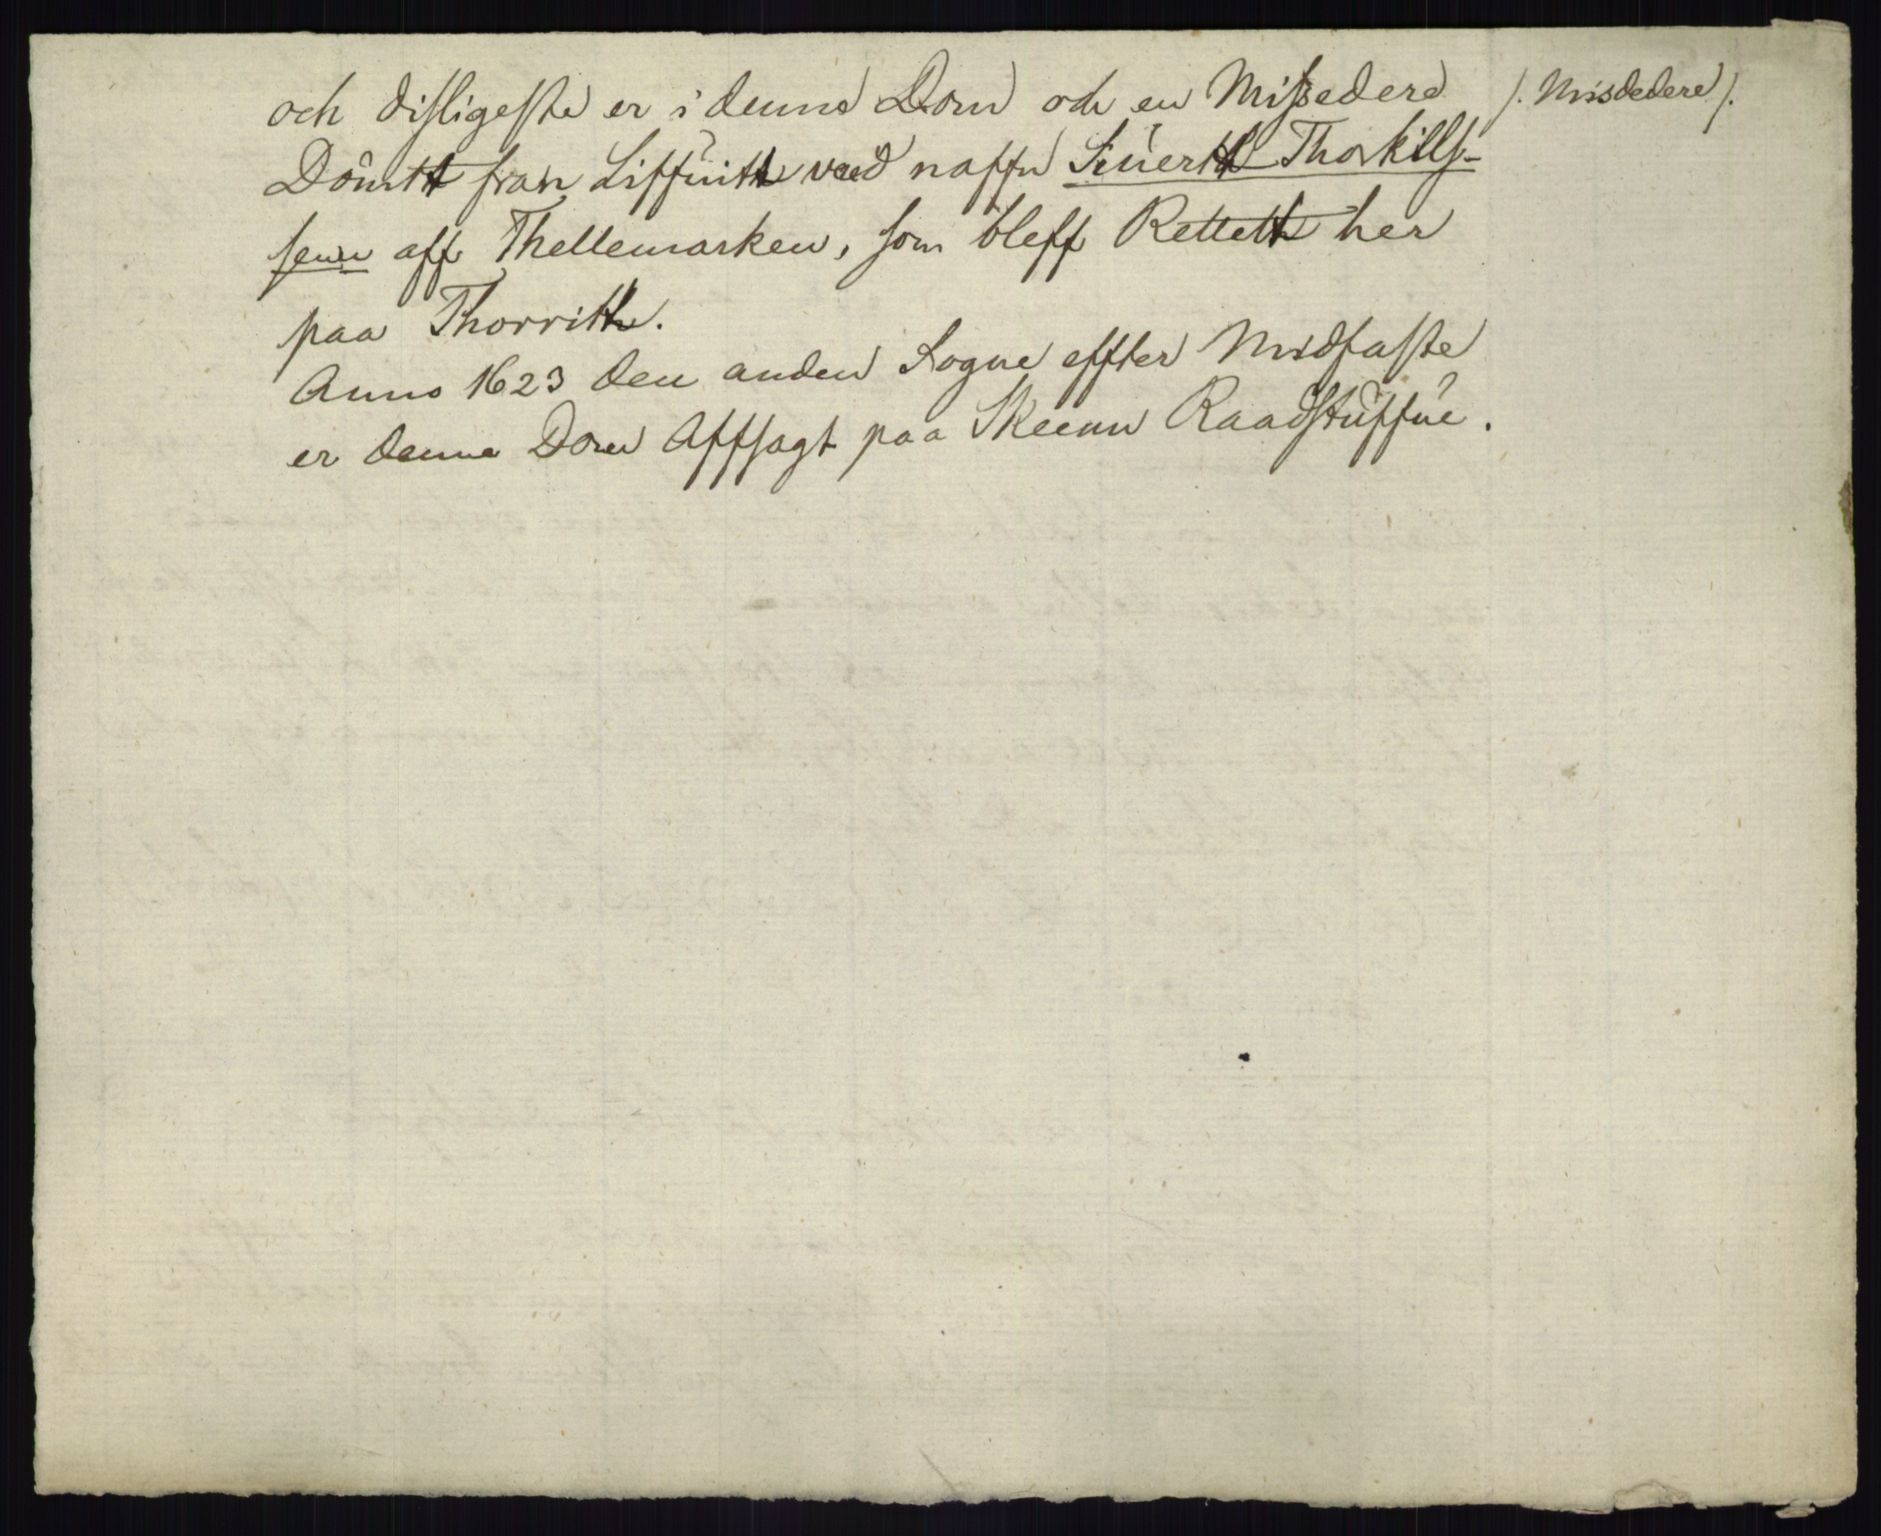 och disligeste er i denne Dom och en Missedere /: Misdedere /:
Dömtt fran Liffuitt ved naffn Siuertt Thorkills-
senn aff Thellemarken, som bleff Rettett her
paa Thorritt.
Anno 1623 den anden Sogne effter Midfaste
er denne Dom Affsagt paa Skeenn Raadstuffue.